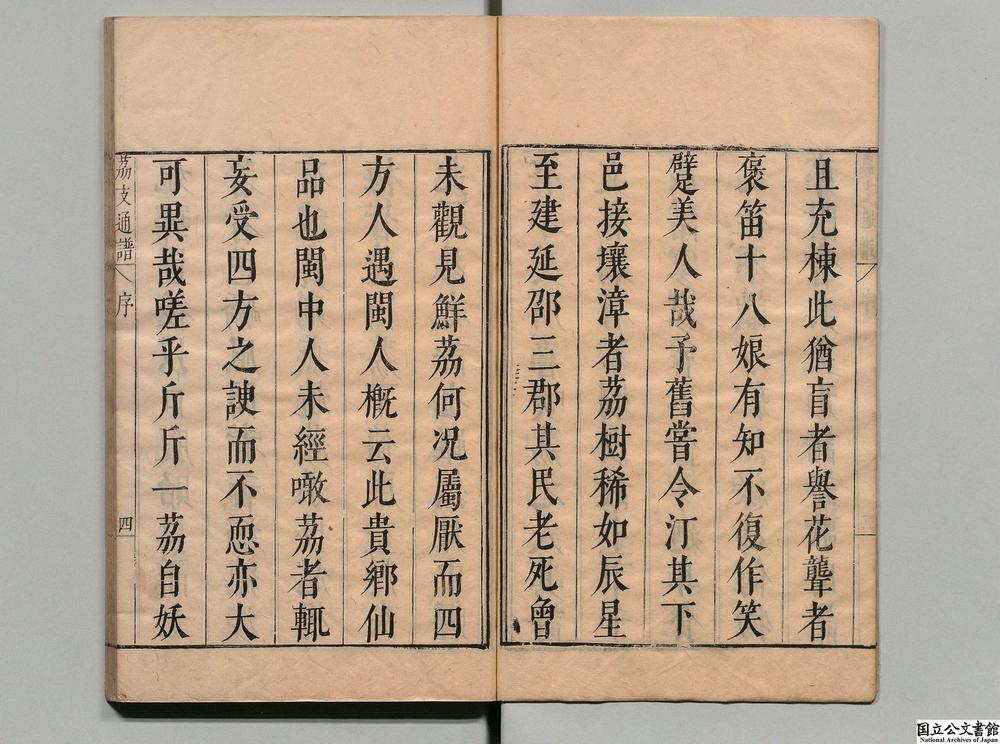 且充棟此猶盲者譽花聾者
褒笛十八娘有知不復作笑
躄美人哉予舊嘗令汀其下
邑接壤漳者荔樹稀如辰星
至建延邵三郡其民老死曾
未觀見鮮荔何况屬厭而四
方人遇閩人槪云此貴鄕仙
品也閩中人未經噉荔者輒
妄受四方之諛而不恧亦大
可異哉嗟乎斤斤一荔自妖
荔支通譜
序
四
国立公文書館
National Archives of Japan